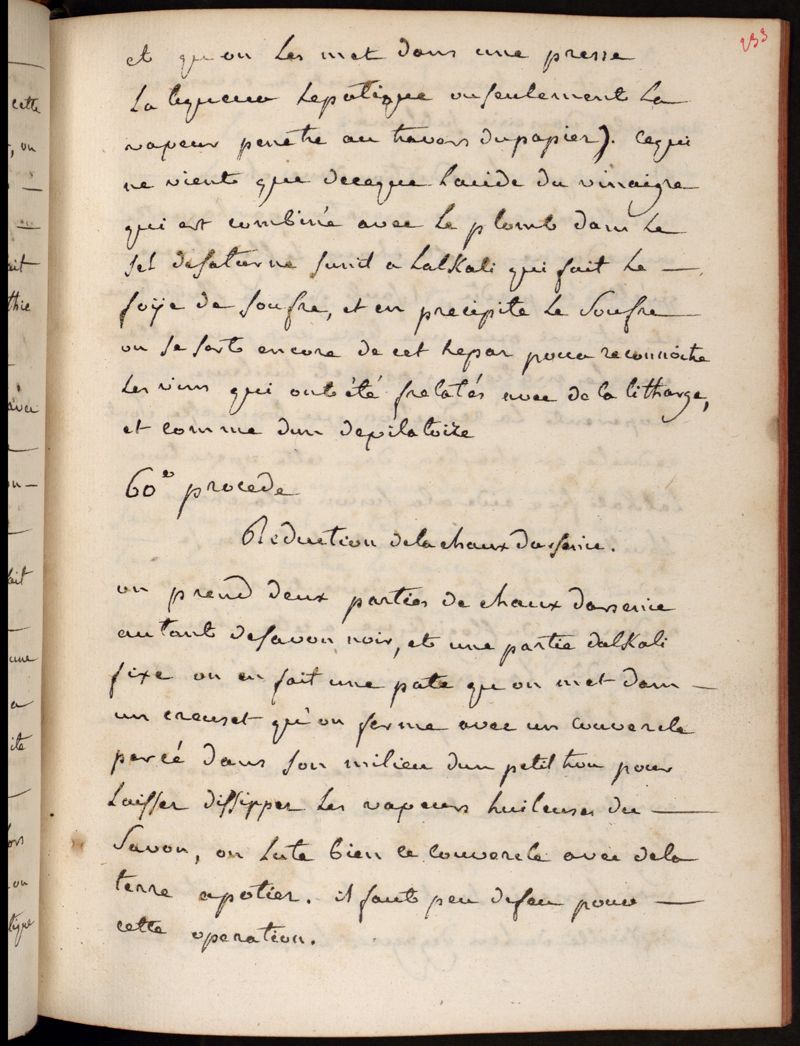 233
et qu'on les met dans une presse
la liqueur hepatique ou seulement la
vapeur penetre au travers du papier). ce qui
ne vient que deceque lacide du vinaigre
qui est combinée avec le plomb dans le
sel desaturne sunit a lalkali qui fait le —
foÿe de soufre, et en precipite le soufre
on se sert encore de cet hepar pour reconnoitre
les vins qui ont été frelatés avec de la litharge,
et comme dun depilatoire
60e procede
Réduction dela chaux darsenic.
on prend deux parties de chaux darsenic
autant desavon noir, et une partie dalkali
fixe on en fait une pate qu'on met dans —
un creuset qu'on ferme avec un couvercle
percé dans son milieu dun petit trou pour
laisser dissipper les vapeurs huileuses du —
savon, on lute bien ce couvercle avec dela
terre a potier. il faut peu defeu pour —
cette operation.
cette
, ou
ait
thie
avec
ait
une
a
ite
lors
ou
tique